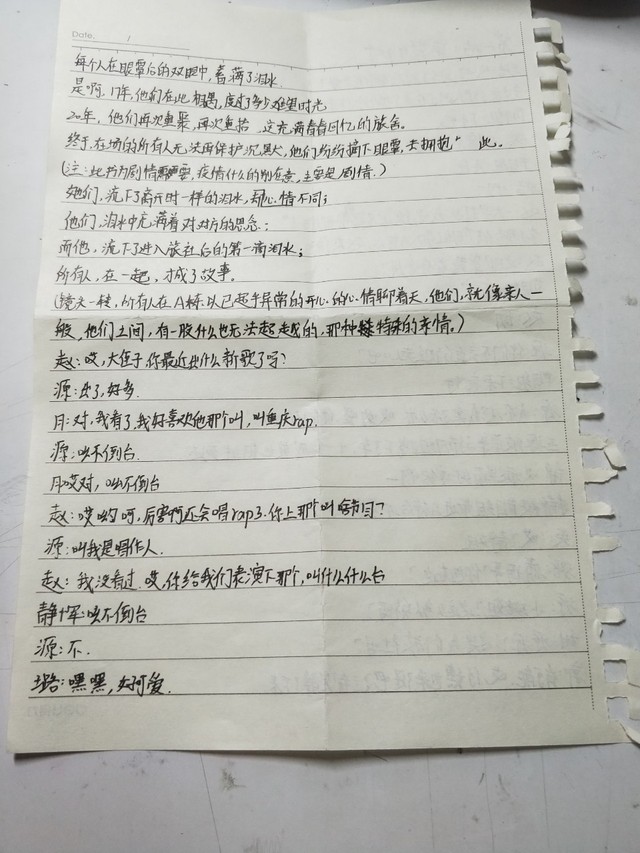 Date. /
每个人在眼罩后的双眼中，蓄满了泪水
是啊，17年，他们在此相遇，度过了多少难望时光
20年，他们再次重聚，再次重拾，这充满青春回忆的旅舍。
终于，在场的所有人无法再保护沉默，他们纷纷摘下眼罩，去拥抱 此。
(注：此书为剧情需要，疫情什么的别在意，主要是剧情.)
她们，流下了离开时一样的泪水，却心情不同；
他们，泪水中充满着对对方的思念；
而他，流下了进入旅社后的第一滴泪水；
所有人，在一起，才成了故事。
(镜头一转，所有人在A栋以已起乎异常的开心的心情聊着天，他们，就像亲人一
般，他们之间，有一股什么也无法超越的，那种特殊的亲情。)
赵：哎，大侄子你最近出什么新歌了吗？
源：出了，好多.
月：对，我看了，我好喜欢他那个叫，叫重庆rap.
源：吹不倒台.
月：哎对，吹不倒台
赵：哎哟呵，厉害啊还会唱rap了.你上那个叫啥节目？
源：叫我是唱作人.
赵：我没看过.哎，你给我们表演下那个，叫什么什么台
静、恽：吹不倒台
源：不.
璐：嘿嘿，好可爱.